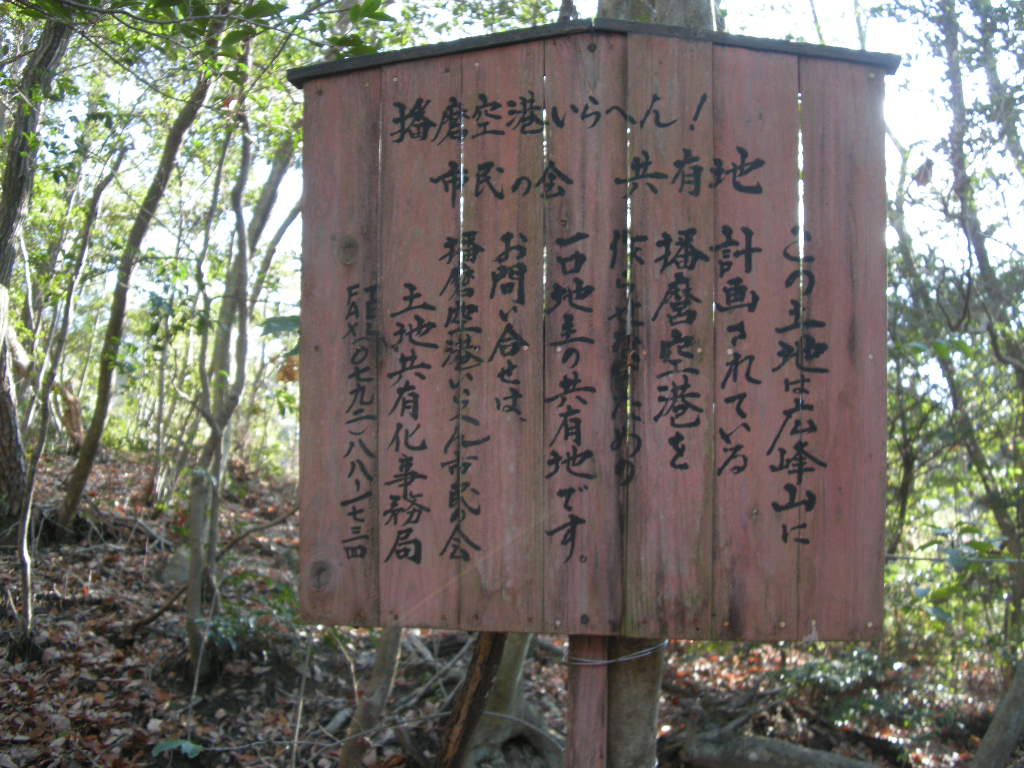 播磨空港いらへん！
市民の会 共有地
この土地は広峰山に
計画されている
播磨空港を
作らせないための
一口地主の共有地です。
お問い合せは、
播磨空港いらへん市民の会
土地共有化事務局
TEL
FAX（０七九二）八八ー一七三四